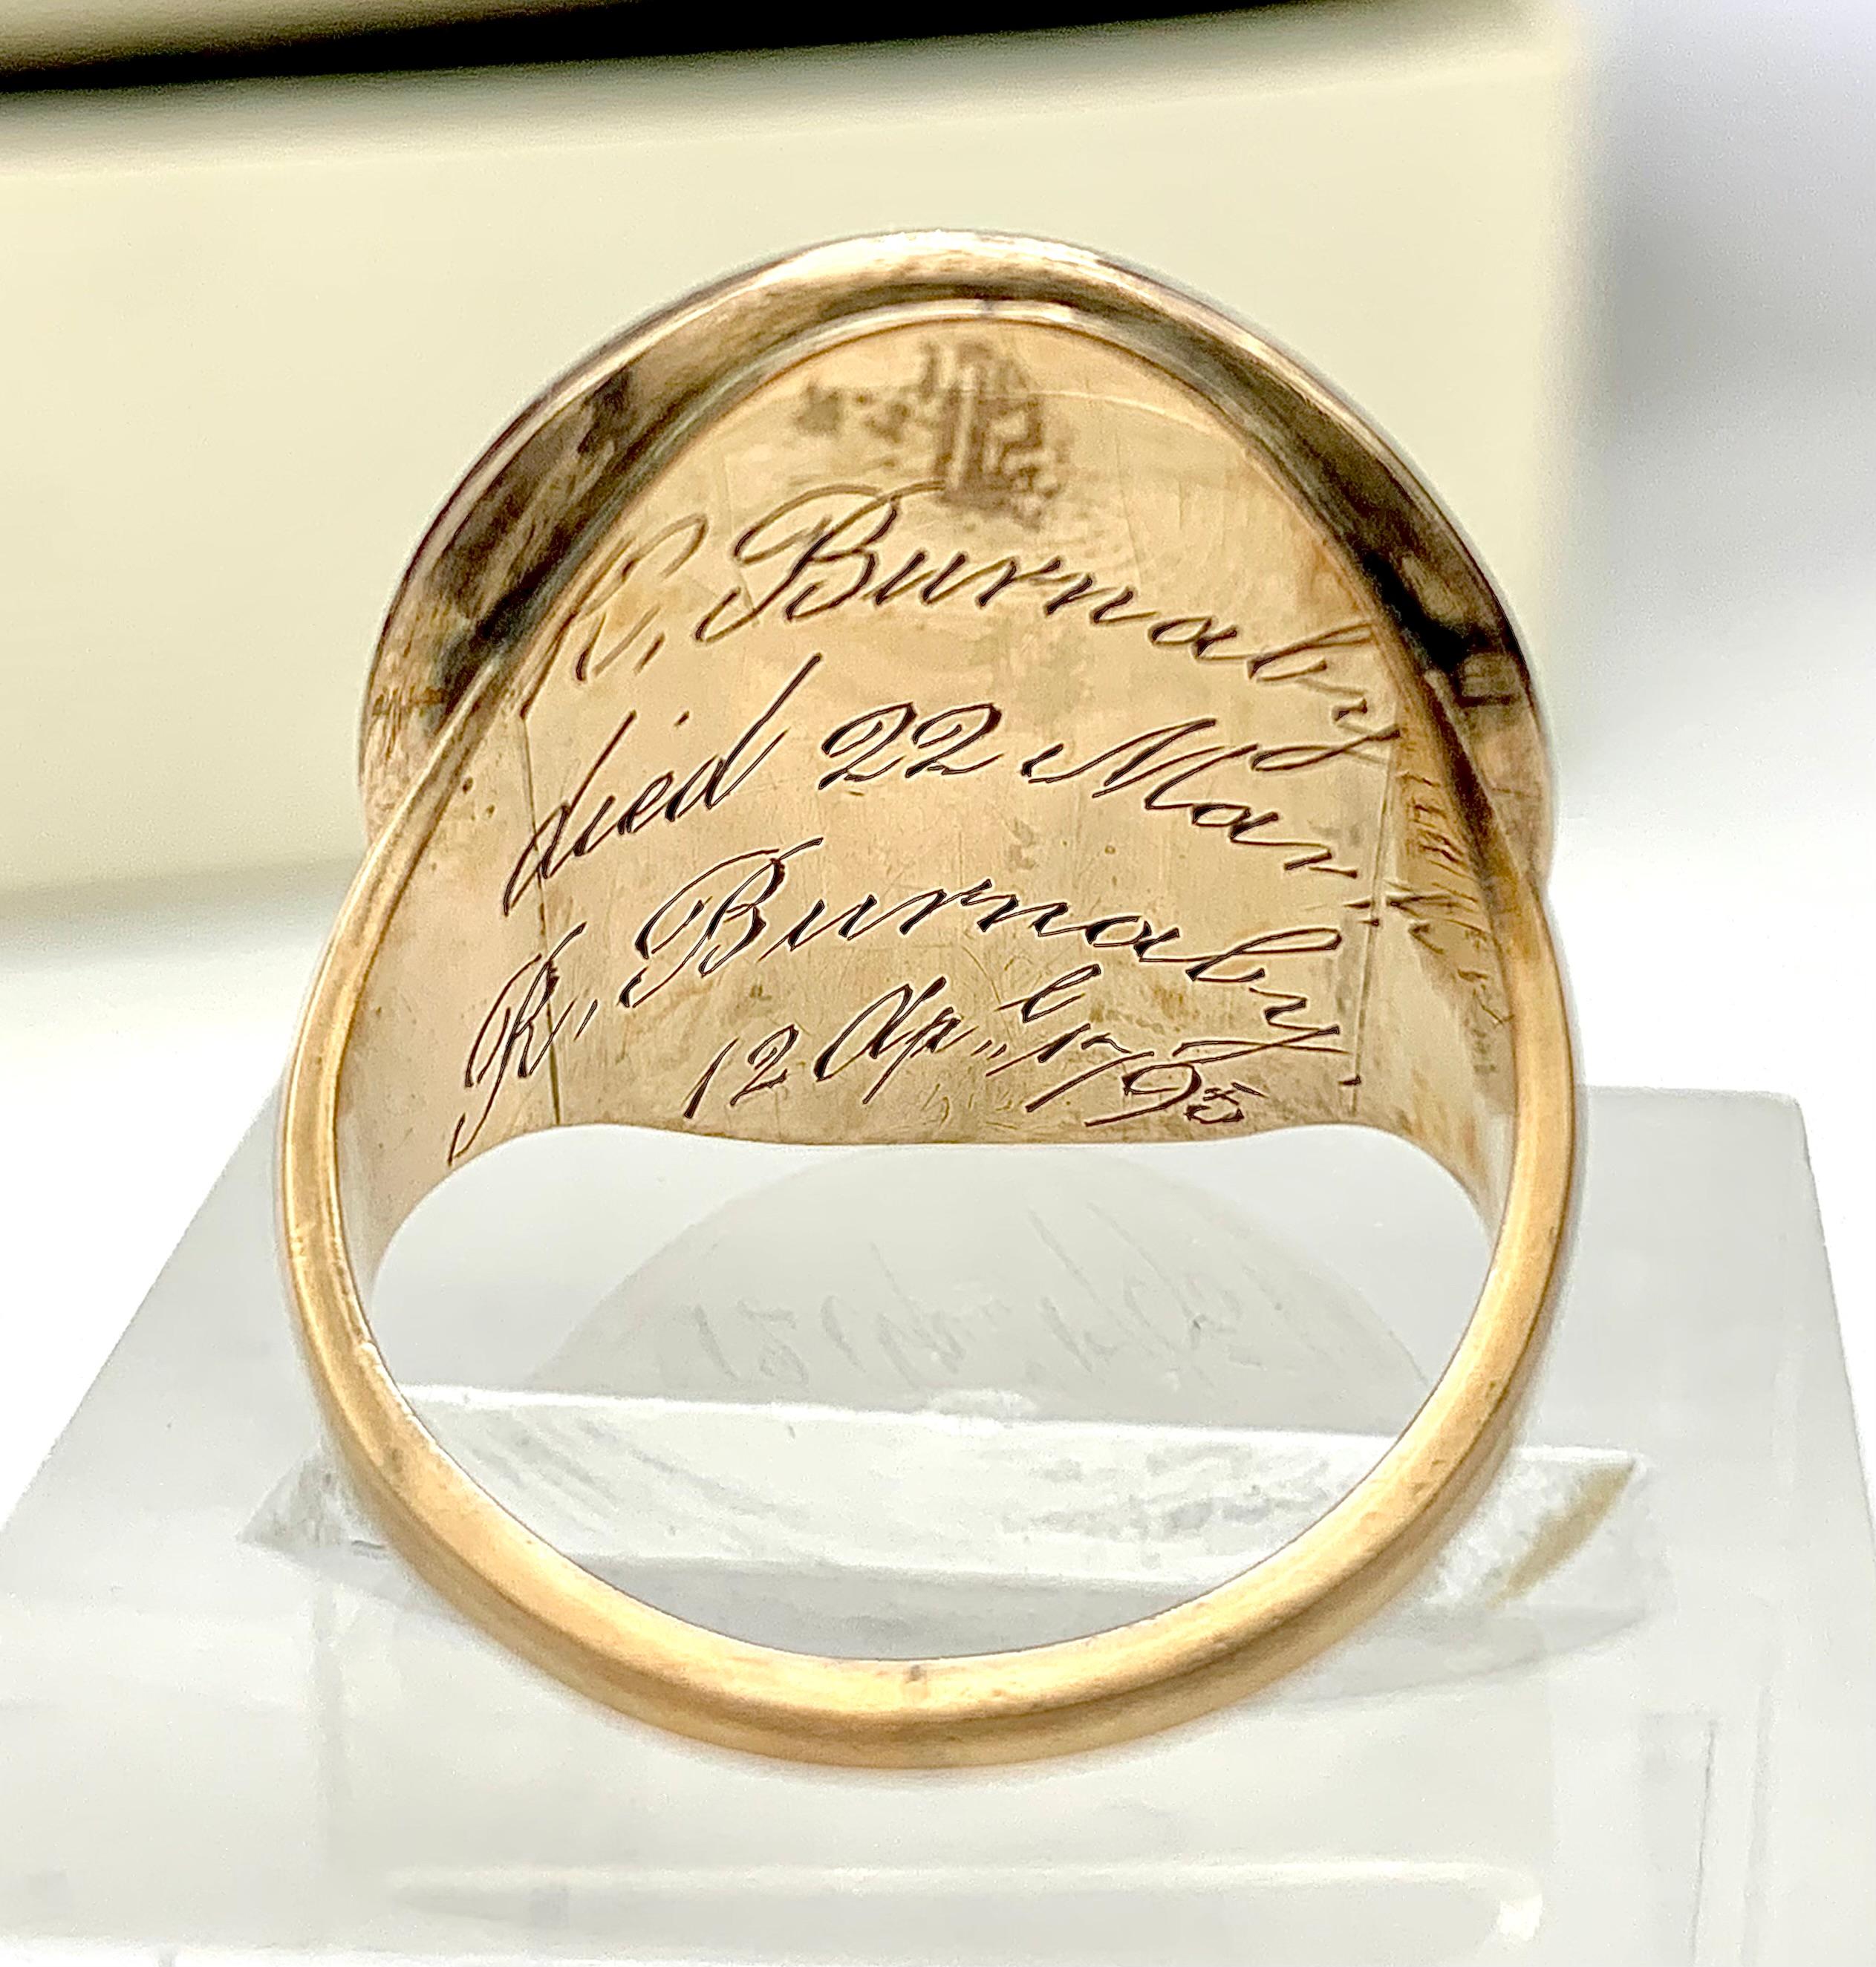 R, Burnaby
died 22 Mar
R, Burnaby,
12 Ap,,l 1795